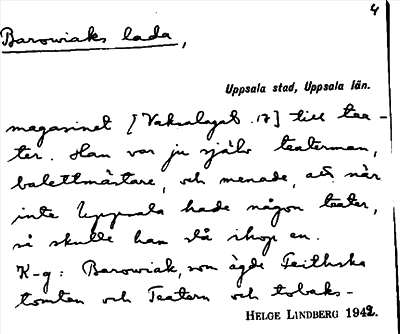 4
Barowiaks lada,
Uppsala stad, Uppsala län.
magasinet [Vaksalagat. 17] till tea-
ter. Han var ju själv teaterman,
balettmästare, och menade, att när
inte Uppsala hade någon teater,
så skulle han slå ihop en.
K-g: Barowiak, som ägde Feithska
tomten och Teatern och tobaks-
HELGE LINDBERG 1942.